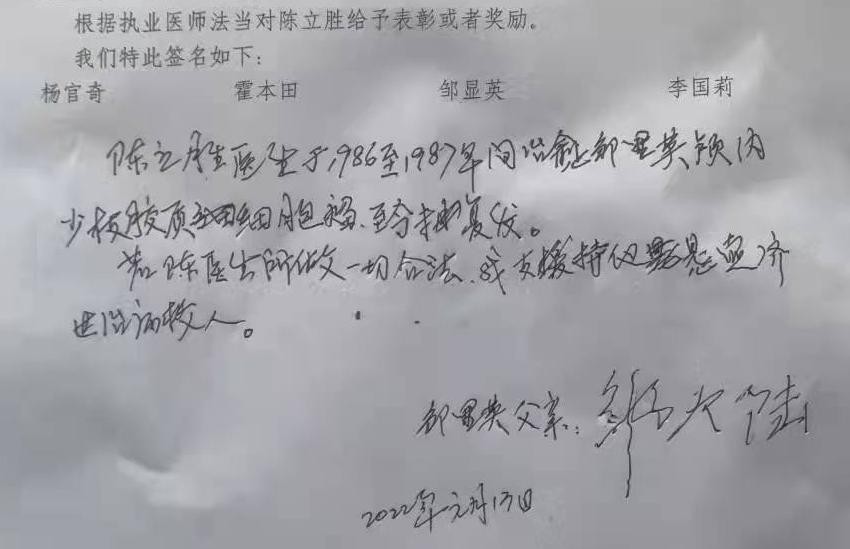 根据执业医师法当对陈立胜给予表彰或者奖励。
我们特此签名如下：
杨官奇 霍本田 邹显英 李国莉
陈立胜医生于1986至1987年间治愈邹显英颅内
少枝胶质细胞瘤、至今未复发。
若陈医生所做文一切合法、我支援持
世治病救人。
邹显英父亲：邹次陆
2022年元月13日